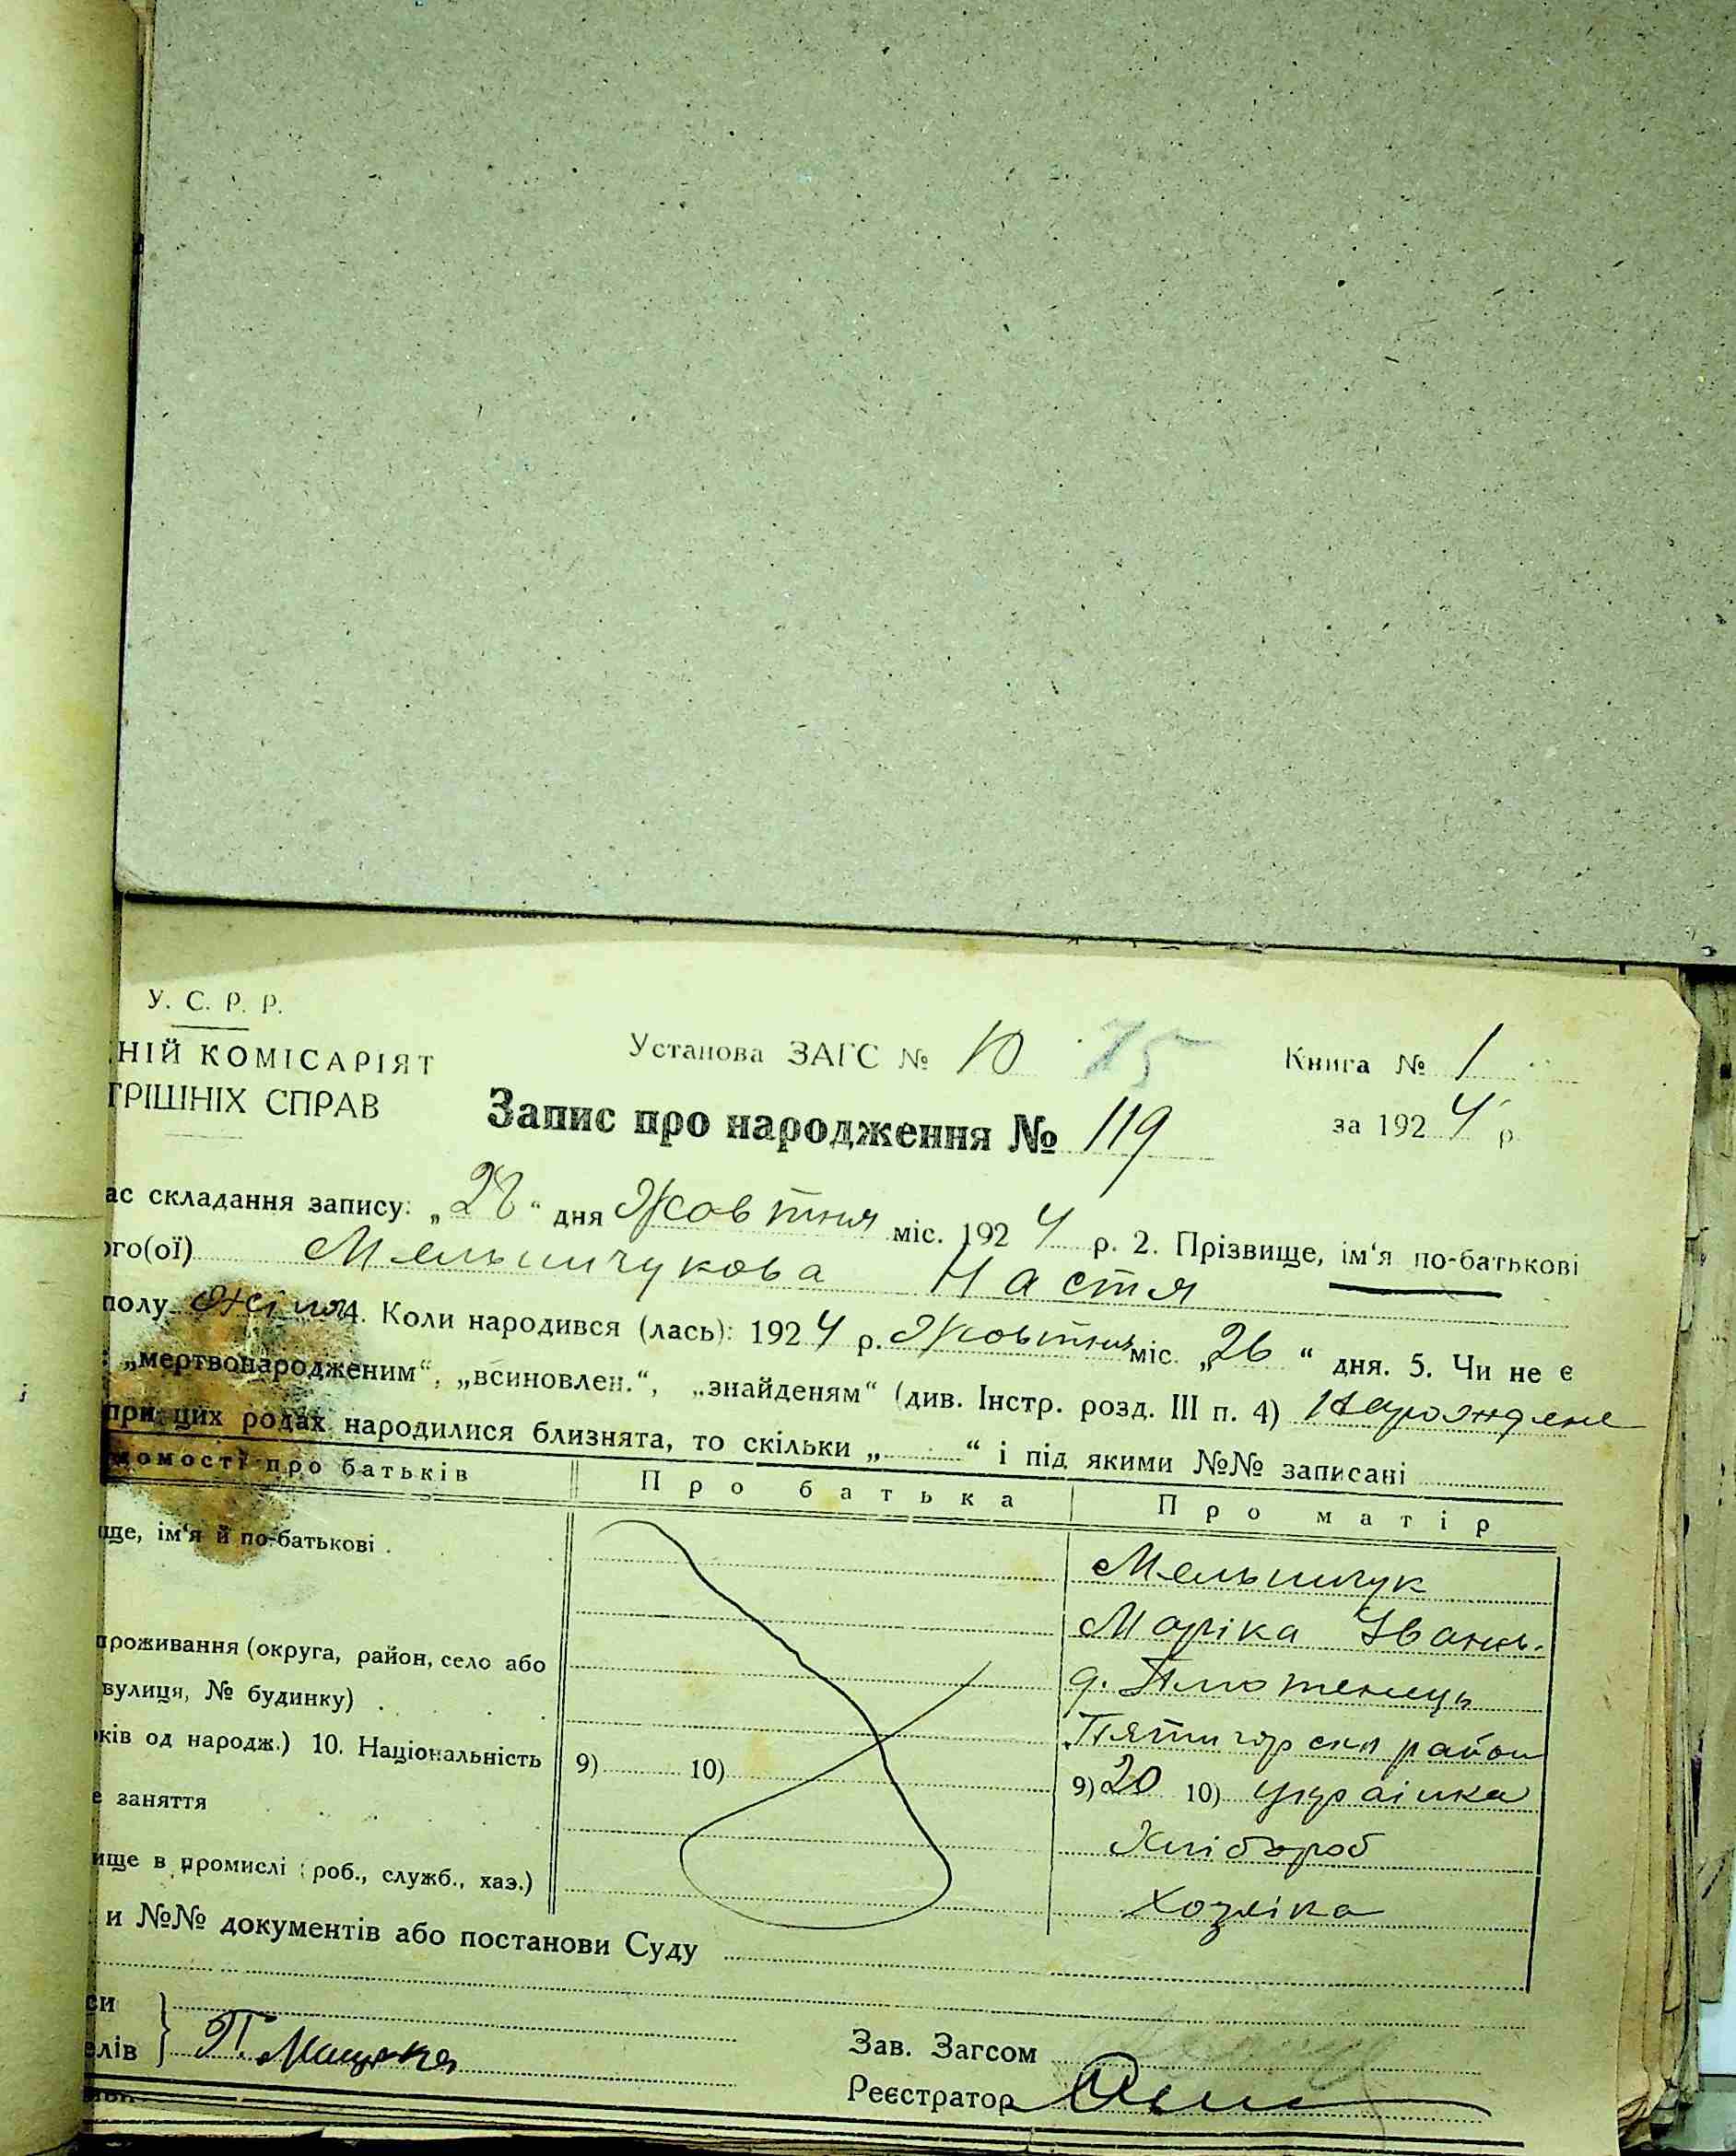 У. С. Р. Р.
НІЙ КОМІСАРІЯТ
ТРІШНІХ СПРАВ
Установа ЗАГС № 10 75
Книга № 1
Запис про народження № 119
за 1924 р.
ас складання запису: „28“ дня Жовтня міс. 1924 р. 2. Прізвище, ім‘я по-батькові
ого(ої) Мельничукова Настя
полу жіноч 4. Коли народився (лась): 1924 р. Жовтня міс. „26“ дня. 5. Чи не є
: „мертвонародженим“, „всиновлен.“, „знайденям“ (див. Інстр. розд. III п. 4) Нарожджене
при цих родах народилися близнята, то скільки „ “ і під якими №№ записані
домості про батьків Про батька Про матір
ще, ім‘я й по-батькові . Мельничук
Маріка Івань.
проживання (округа, район, село або
вулиця, № будинку) .
Пятигорськ район
ків од народж.) 10. Національність 9) 10) 9) 20 10) Українка
е заняття Хлібороб
ище в промислі (роб., служб., хаз.) Хозяіка
и №№ документів або постанови Суду
си
елів П.
Зав. Загсом
Реєстратор